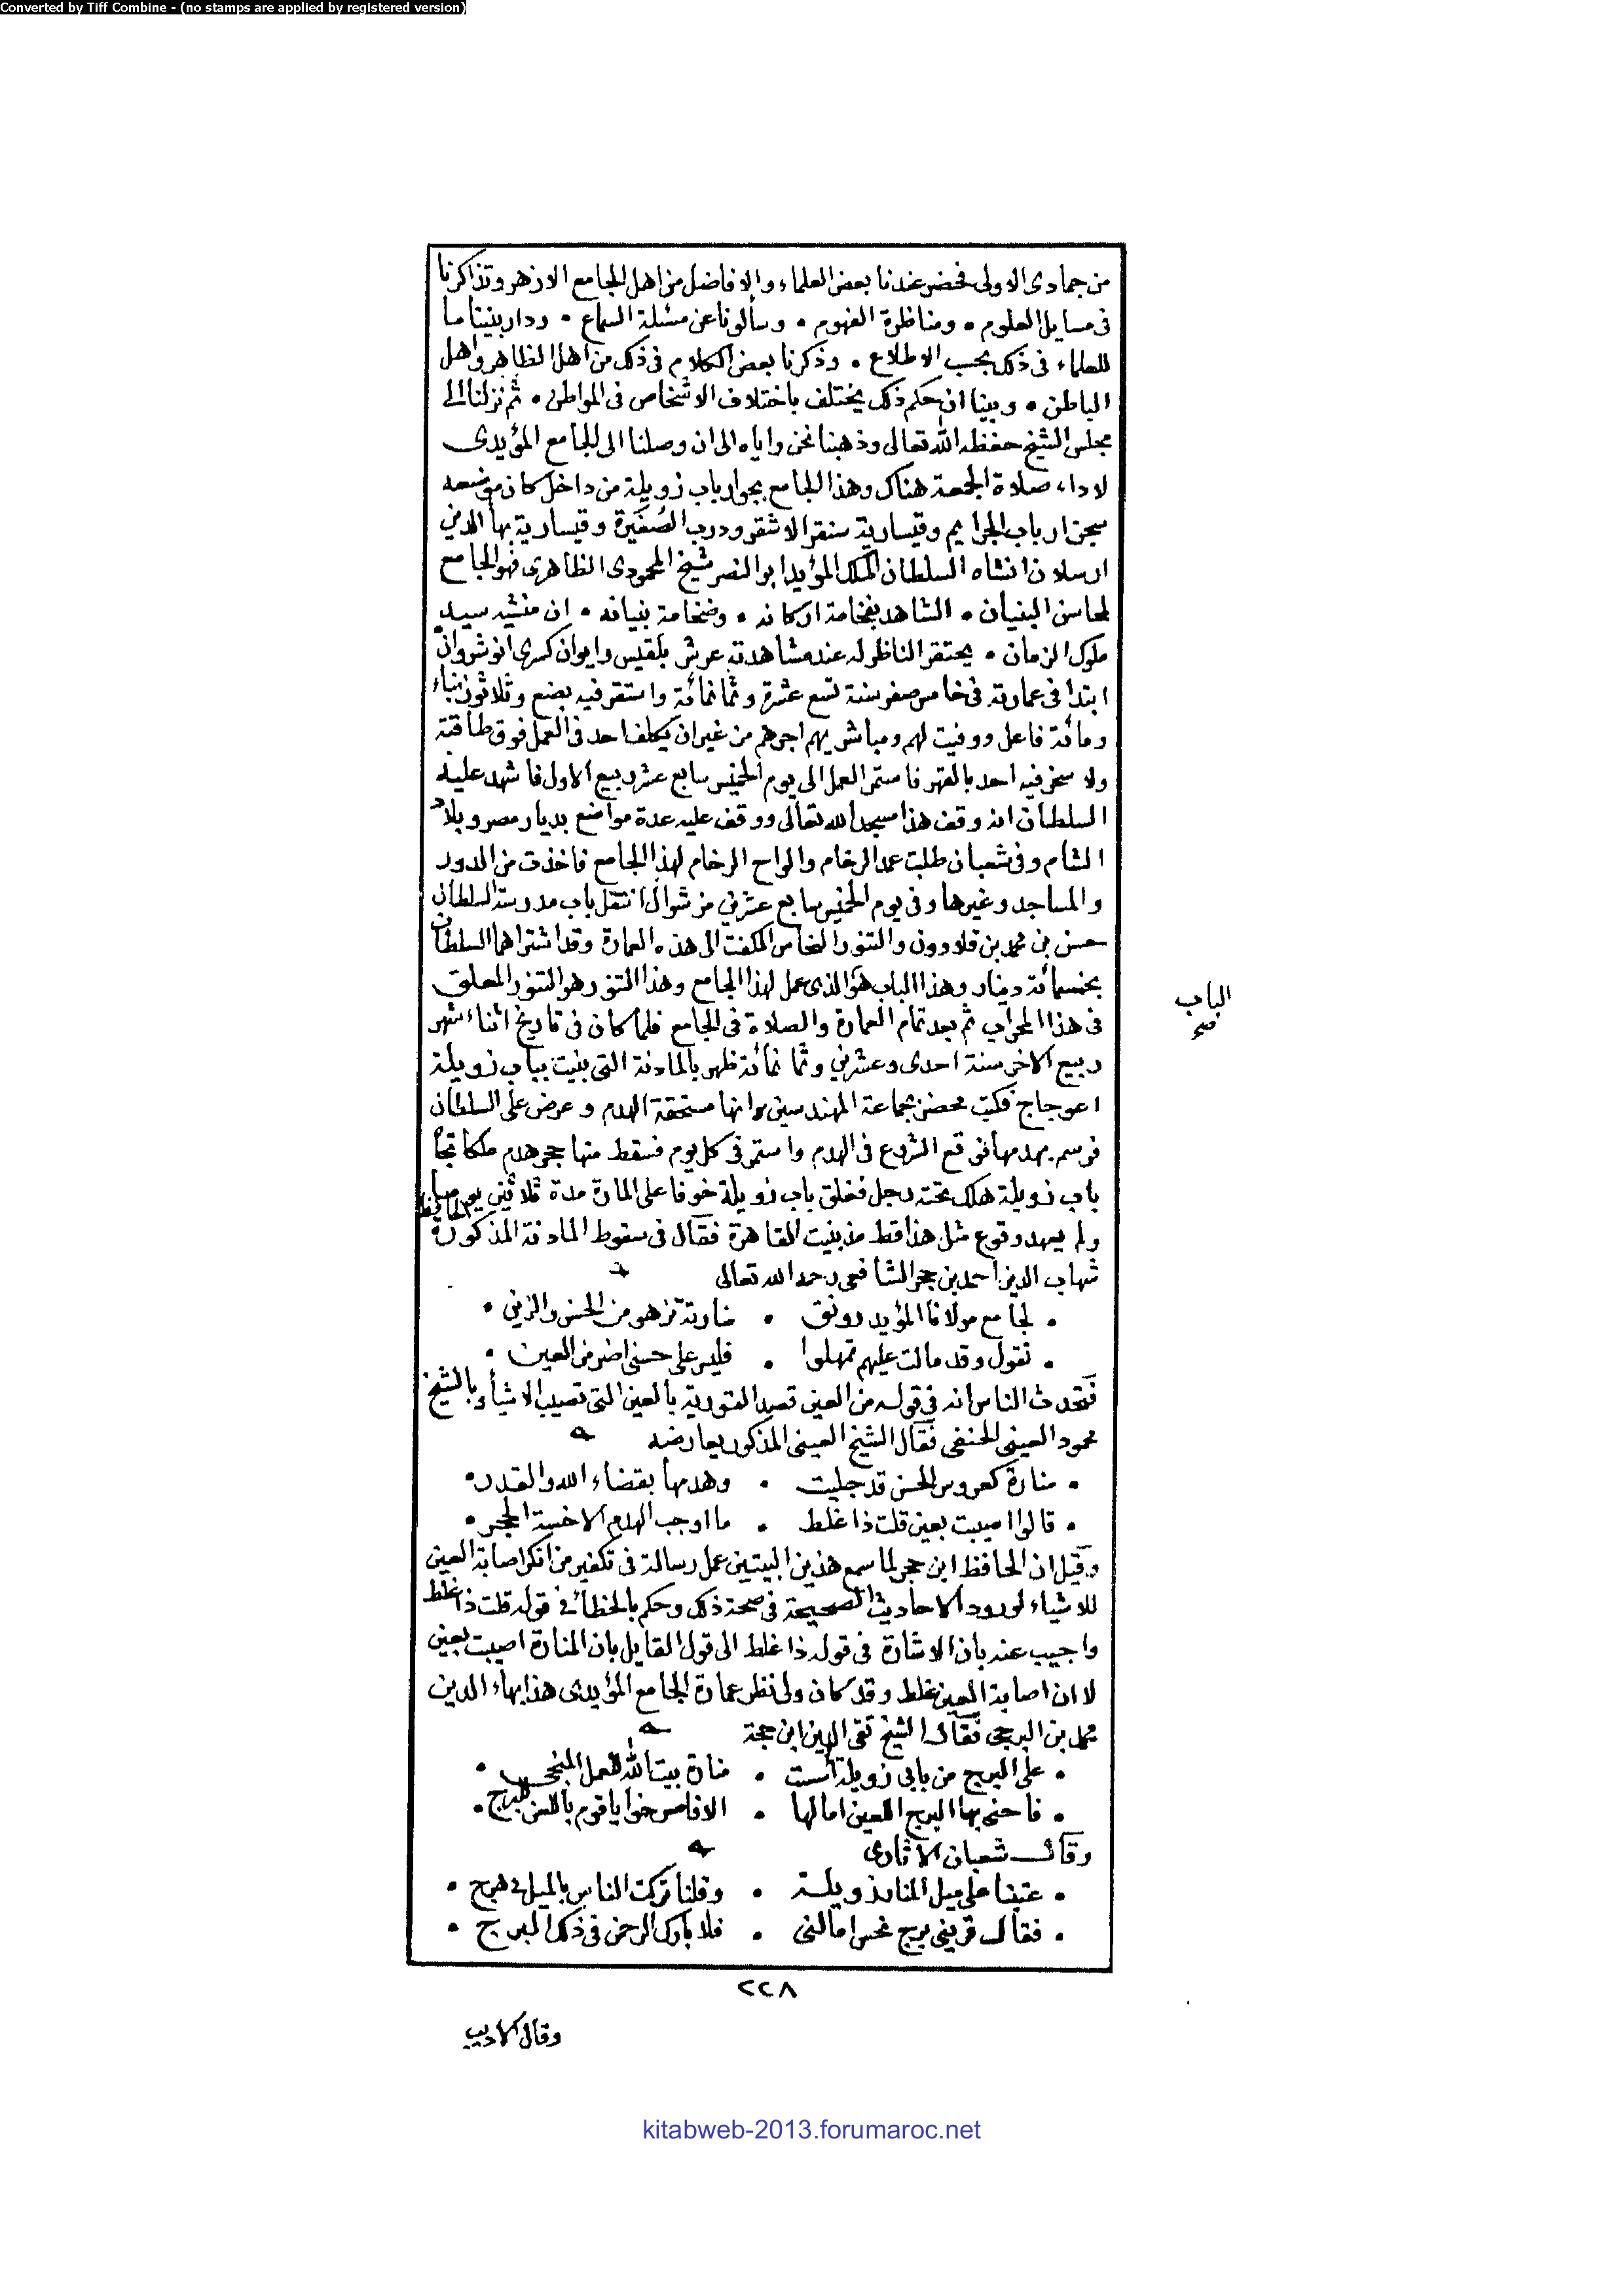 Converted by Tiff Combine - (no stamps are applied by registered version)
من جمادى الاولى فحضر عندنا بعض العلماء والافاضل من اهل الجامع الازهر وتذاكرنا
فى مسايل العلوم • ومناظرة الفهوم • وسألونا عن مسئلة السماع • ودار بيننا ما
للعلماء فى ذلك بحسب الاطلاع • وذكرنا بعض الكلام فى ذلك من اهل الظاهر واهل
الباطن • وبينا ان حكم ذلك يختلف باختلاف الاشخاص فى المواطن • ثم نزلنا الى
مجلس الشيخ حفظه الله تعالى وذهبنا نحن واياه الى ان وصلنا الى الجامع المؤيدى
لاداء صلاة الجمعة هناك وهذا الجامع بجوار باب زويلة من داخل كان موضعه
سجن ارباب الجرايم وقيسارية سنقر الاشقر ودرب الصغيرة وقيسارية بهاء الدين
ارسلان انشاه السلطان الملك المؤيد ابو النصر شيخ المحمودى الظاهرى فهو الجامع
لمحاسن البنيان • الشاهد بفخامة اركانه • وضخامة بنيانه • ان منشيه سيد
ملوك الزمان • يحتقر الناظر له عند مشاهدته عرش بلقيس وايوان كسرى انوشروان
ابتدا فى عمارته فى خامس صفر سنة تسع عشرة وثمانمائة واستقر فيه بضع وثلاثون بناء
ومائة فاعل ووفيت لهم ومباشريهم اجرهم من غير ان يكلف احد فى العمل فوق طاقته
ولا سخر فيه احد بالقهر فاستمر العمل الى يوم الخميس سابع عشر ربيع الاول فاشهد عليه
السلطان انه وقف هذا مسجدا لله تعالى ووقف عليه عدة مواضع بديار مصر وبلاد
الشام وفى شعبان طلبت عمد الرخام والواح الرخام لهذا الجامع فاخذت من الدور
والمساجد وغيرها وفى يوم الخميس سابع عشرين من شوال انتقل باب مدرسة السلطان
حسن بن محمد بن قلاوون والتنور النحاس المكفت الى هذه العمارة وقد اشتراهما السلطان
بخمسمائة دينار وهذا الباب هو الذى عمل لهذا الجامع وهذا التنور هو التنور المعلق
الباب
صح
فى هذا المحراب ثم بعد تمام العمارة والصلاة فى الجامع فلما كان فى تاريخ اثناء شهر
ربيع الاخر سنة احدى وعشرين وثمانمائة ظهر بالمادنة التى بنيت بباب زويلة
اعوجاج فكتب محضر بجماعة المهندسين انها مستحقة الهدم وعرض على السلطان
فرسم بهدمها فوقع الشروع فى الهدم واستمر فى كل يوم فسقط منها حجر هدم ملكا تجاه
باب زويلة هلك تحته رجل فغلق باب زويلة خوفا على المارة مدة ثلاثين يوما
ولم يعهد وقوع مثل هذا قط منذ بنيت القاهرة فقال فى سقوط المادنة المذكورة الحافظ
شهاب الدين احمد بن حجر الشافعى رحمه الله تعالى
• لجامع مولانا المؤيد رونق • منارته تزهو من الحسن والزين •
• تقول وقد مالت عليهم تمهلوا • فليس على حسنى اضر من العين •
فتحدث الناس انه فى قوله من العين قصد التورية بالعين التى تصيب الاشياء وبالشيخ
محمود العينى الحنفى فقال الشيخ العينى المذكور يعارضه
• منارة كعروس الحسن قد جليت • وهدمها بقضاء الله والقدر •
• قالوا اصيبت بعين قلت ذا غلط • ما اوجب الهدم الا خسة الحجر •
وقيل ان الحافظ ابن حجر لما سمع هذين البيتين عمل رسالة فى تكفير من انكر اصابة العين
للاشياء لورود الاحاديث الصحيحة فى صحة ذلك وحكم بالخطأ فى قوله قلت ذا غلط
واجيب عنه بان الاشارة فى قوله ذا غلط الى قول القايل بان المنارة اصيبت بعين
لا ان اصابة العين غلط وقد كان ولى نظر عمارة الجامع المؤيدى هذا بهاء الدين
محمد بن البرجى فقال الشيخ تقى الدين ابن حجة
• على البرج من بابى زويلة اسست • منارة بيت الله للعمل المنجى •
• فاخنى بها البرج اللعين امالها • الا فاصرخوا يا قوم باللعن للبرج •
وقال شعبان الاثارى
• عتبنا على ميل المنار زويلة • وقلنا تركت الناس بالميل فى هرج •
• فقال قرينى برج نحس امالنى • فلا بارك الرحمن فى ذلك البرج •
٢٢٨
وقال الاديب
kitabweb-2013.forumaroc.net